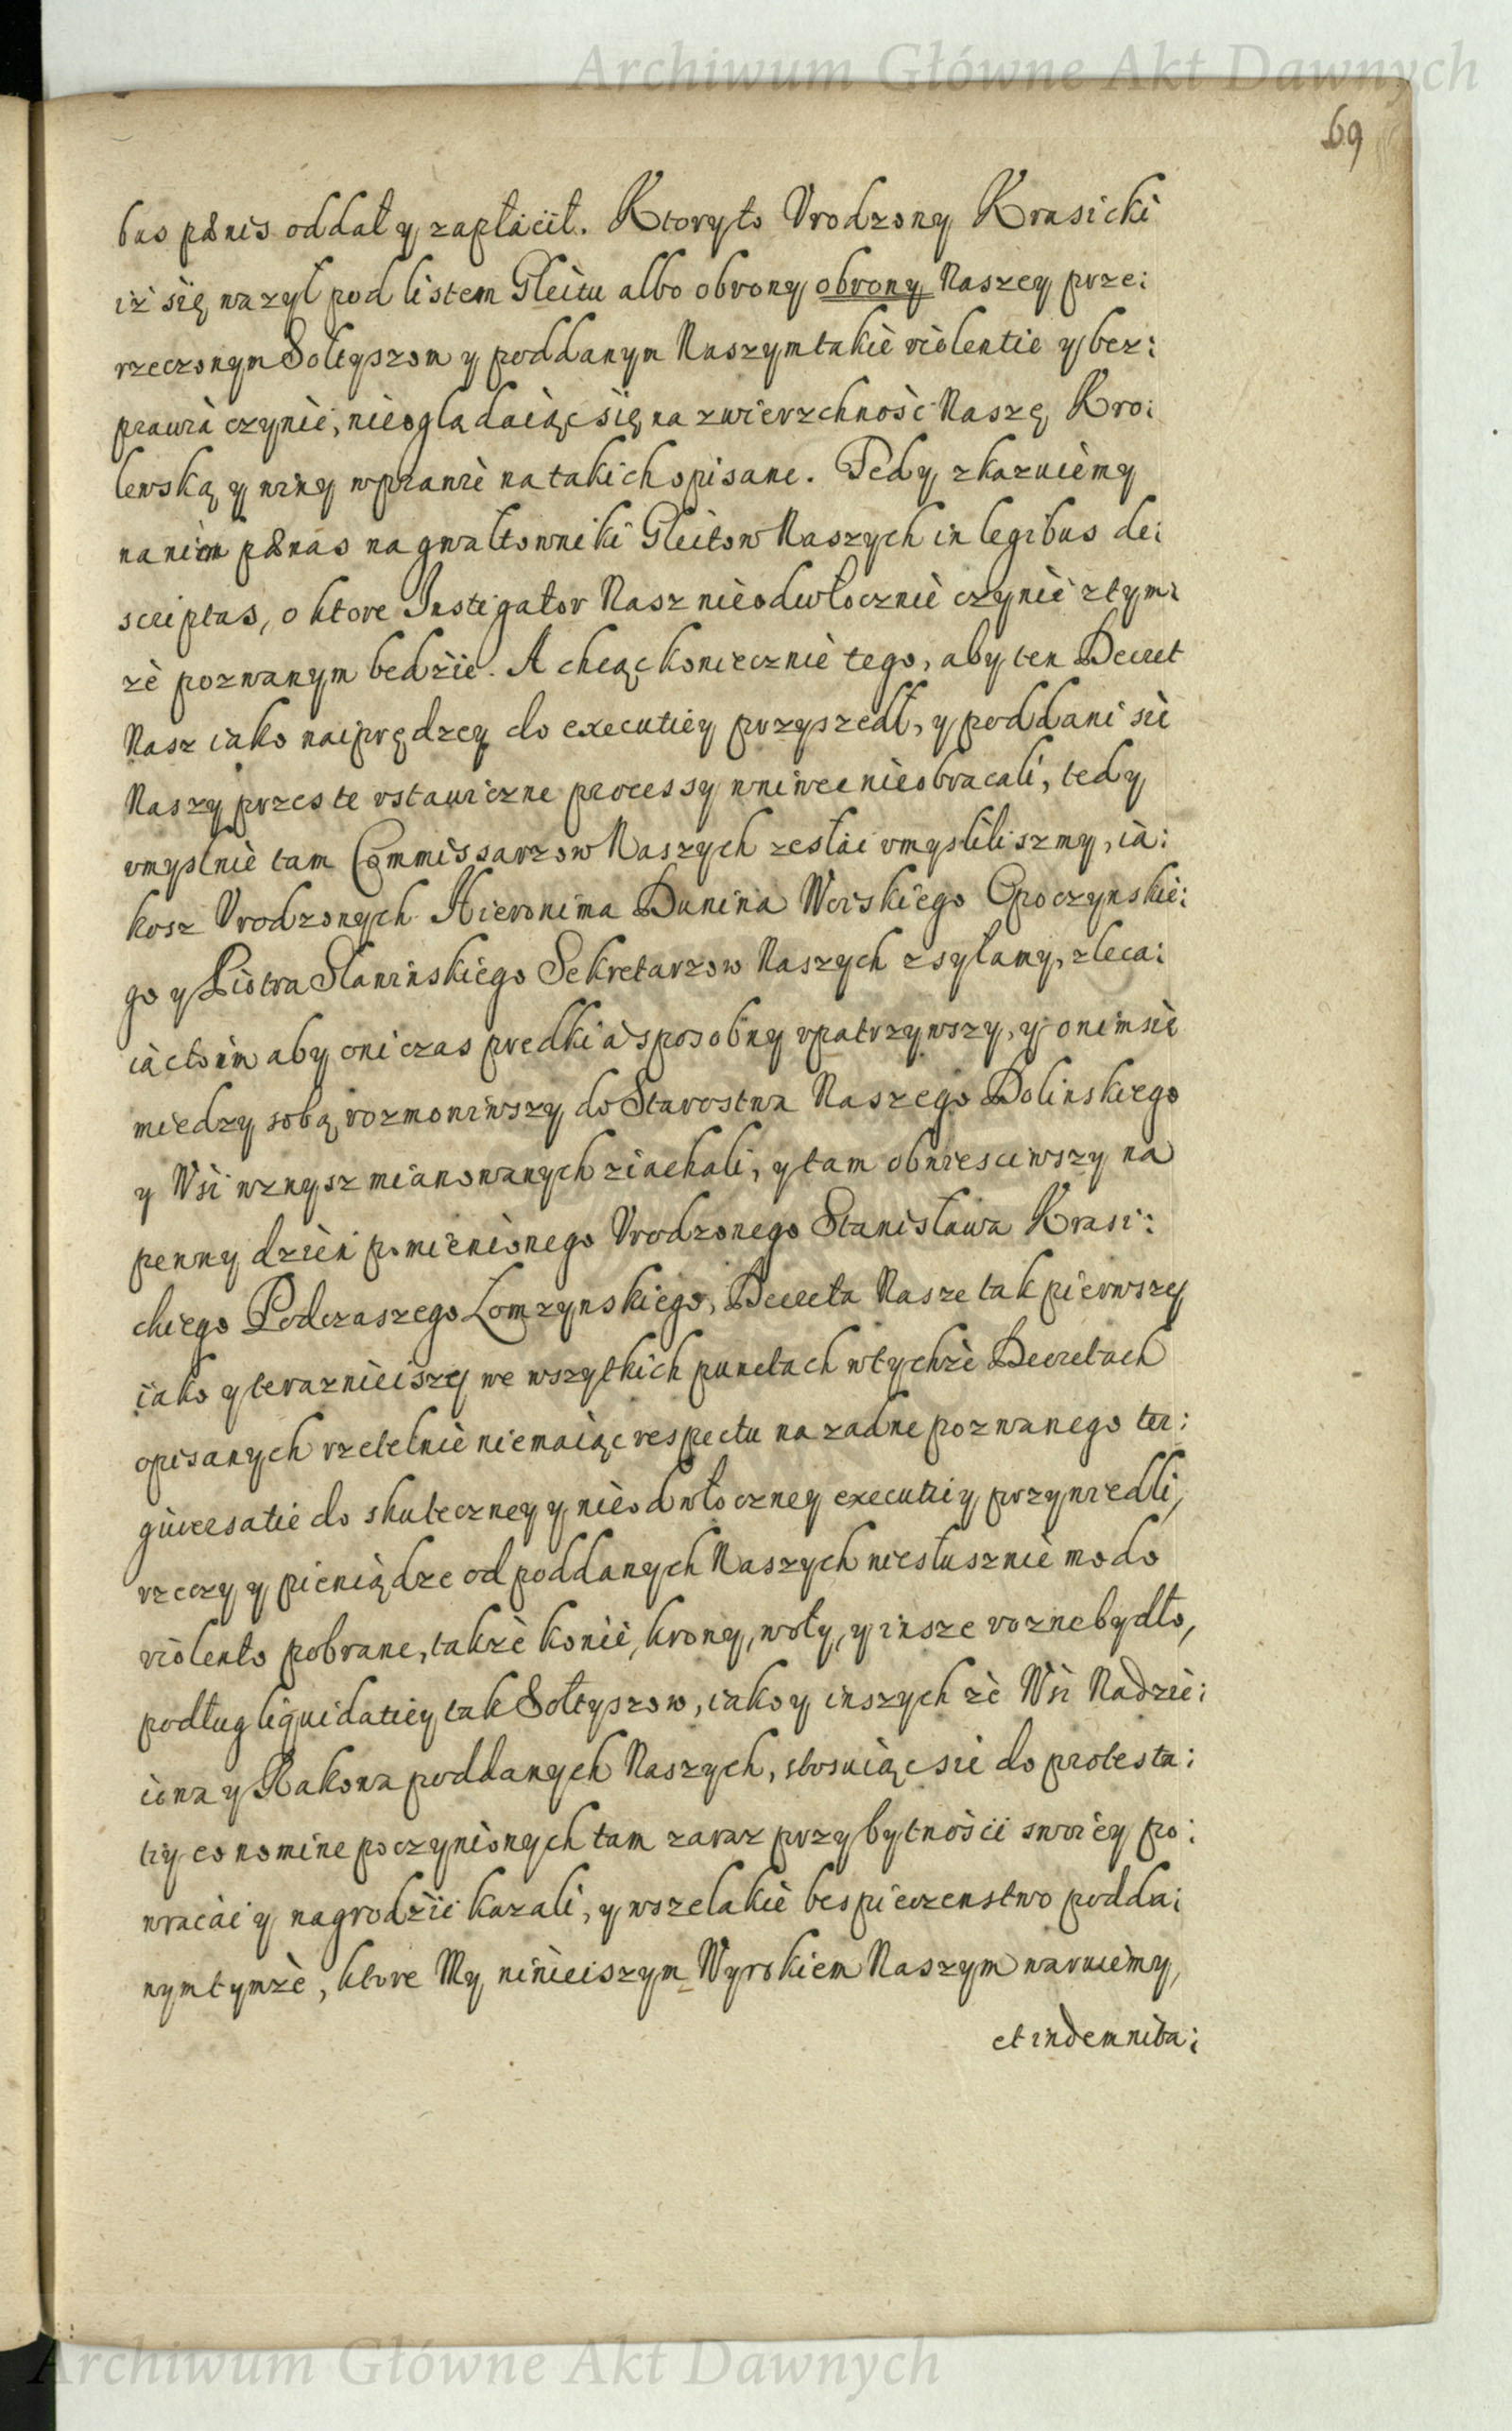 Archiwum Główne Akt Dawnych
69
bus pœnis oddał y zapłacił. Ktory to Vrodzony Krasicki
iż się wazył pod listem Gleitu albo obrony obrony Naszey prze:
rzeczonym Sołtyszom y poddanym Naszym takie violentie y bez:
prawia czynić, nieogladaiąc się na zwierzchność Naszę Kro:
lewską y winy w prawie na takich opisane. Tedy zkazuiemy
na nim pœnas na gwałtowniki Gleitow Naszych in legibus de:
scriptas, o ktore Instigator Nasz nieodwłocznie czynić z tym:
że pozwanym bedzie. A chcąc koniecznie tego, aby ten Decret
Nasz iako naiprędzey do executiey przyszedł, y poddani sie
Naszy przes te vstawiczne processy wniwec nieobracali, tedy
vmyslnie tam Commissarzow Naszych zesłać vmyslilismy, ia:
kosz Vrodzonych Hieronima Dunina Woiskiego Opoczynskie:
go y Piotra Slaninskiego Sekretarzow Naszych zsyłamy, zleca:
iąc to im aby oni czas predki a sposobny vpatrzywszy, y onim sie
miedzy sobą rozmowiwszy do Starostwa Naszego Dolinskiego
y Wsi wznysz mianowanych ziachali, y tam obwiesciwszy na
pewny dzień pomienionego Vrodzonego Stanisława Krasi:
ckiego Podczaszego Łomzynskiego, Decreta Nasze tak pierwszy
iako y teraznieiszy we wszytkich punctach w tychże Decretach
opisanych rzetelnie niemaiąc respectu na zadne pozwanego ter:
giversatie do skuteczney y nieodwłoczney executiy przywiedli,
rzeczy y pieniądze od poddanych Naszych niesłusznie modo
violento pobrane, także konie, krowy, woły, y insze rozne bydło,
podług liquidatiey tak Sołtyszow, iako y inszych że Wsi Nadzie:
iowa y Rakowa poddanych Naszych, stosuiąc sie do protesta:
tiy eo nomine poczynionych tam zaraz przy bytnościi swoiey po:
wracać y nagrodzić kazali, y wszelakie bespieczenstwo podda:
nym tymże, ktore My ninieiszym Wyrokiem Naszym waruiemy,
et indemnita:
Archiwum Główne Akt Dawnych